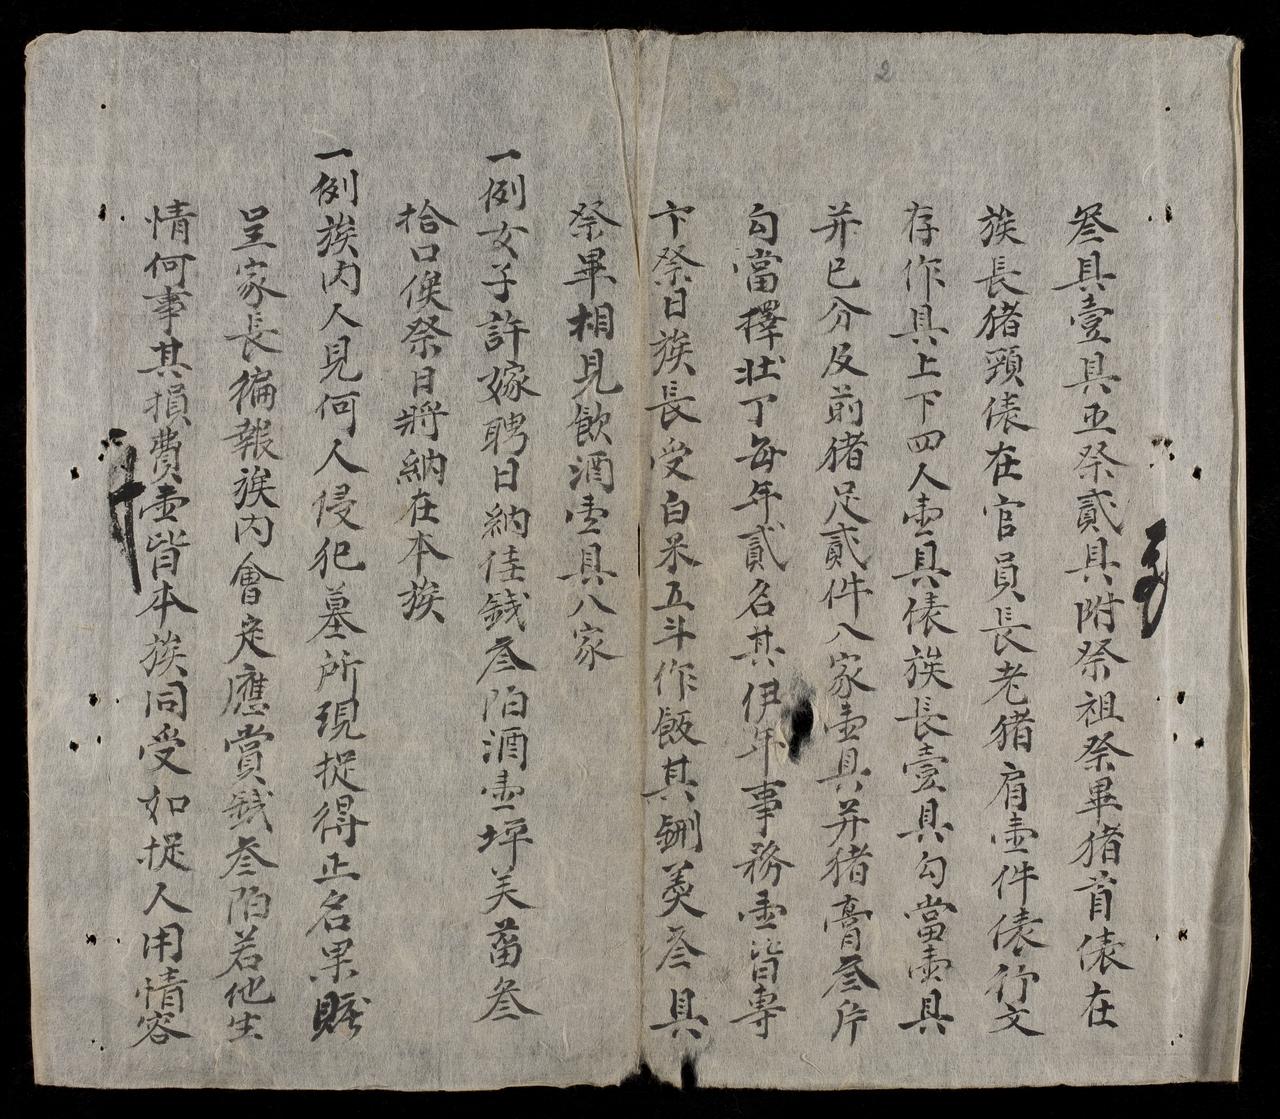 叄具壹具正祭貳具附祭祖祭畢猪首俵在
族長猪頸俵在官員長老猪肩壹件俵行文
存作具上下四人壹具俵族長壹具勾當壹具
并巳分及前猪足貳件八家壹具并猪膏叄斤
勾當擇壯丁每年貳名其伊年事務壹皆專
卞祭日族長受白米五斗作飯其鉶羹叄具
祭畢相見飲酒壹具八家
一例女子許嫁聘日納佳錢叄陌酒壹坪美畨叄
拾口俟祭日將納在本族
一例族内人見何人侵犯墓所現捉得正名果賍
呈家長徧報族内會定應賞錢叄陌若他生
情何事其損費壹皆本族同受如捉人用情容